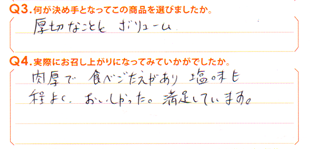 Q3.何が決め手となってこの商品を選びましたか。
厚切なことと ボリューム
Q4.実際にお召し上がりになってみていかがでしたか。
肉厚で 食べごたえがあり 塩味も
程よく、おいしかった。満足しています。